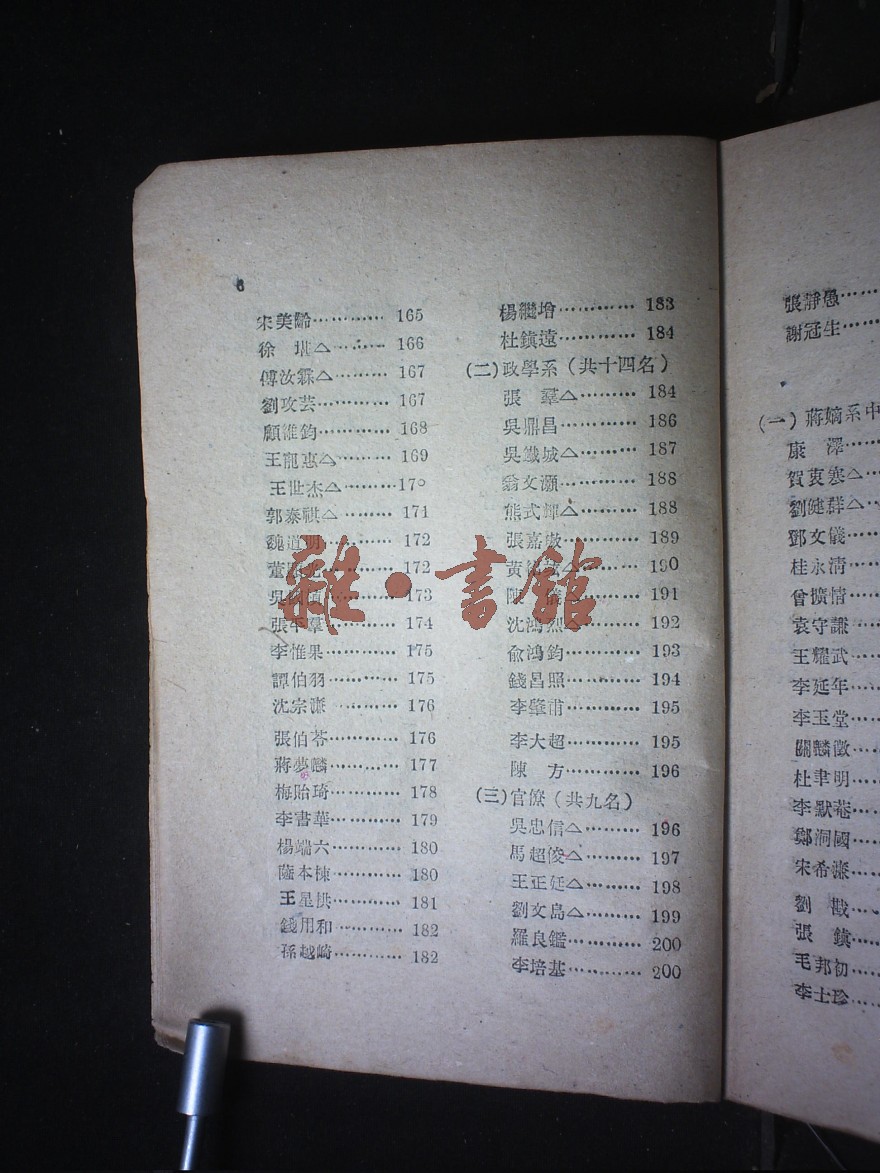 6
宋美齡………… 165
徐　堪△……… 166
傅汝霖△……… 167
劉攻芸………… 167
顧維鈞………… 168
王寵惠△……… 169
王世杰△……… 170
郭泰祺△……… 171
魏道明………… 172
董顯光………… 172
吳國楨………… 173
張平羣………… 174
李惟果………… 175
譚伯羽………… 175
沈宗濂………… 176
張伯苓………… 176
蔣夢麟………… 177
梅貽琦………… 178
李書華………… 179
楊端六………… 180
薩本棟………… 180
王星拱………… 181
錢用和………… 182
孫越崎………… 182
楊繼增………… 183
杜鎮遠………… 184
(二)政學系（共十四名）
張　羣△……… 184
吳鼎昌………… 186
吳鐵城△……… 187
翁文灝………… 188
熊式輝△……… 188
張嘉璈………… 189
黃　△……… 190
陳　儀△……… 191
沈鴻烈△……… 192
俞鴻鈞………… 193
錢昌照………… 194
李肇甫………… 195
李大超………… 195
陳　方………… 196
(三)官僚（共九名）
吳忠信△……… 196
馬超俊△……… 197
王正廷△……… 198
劉文島△……… 199
羅良鑑………… 200
李培基………… 200
張靜愚……
謝冠生……
(一)蔣嫡系中
康　澤……
賀衷寒△…
劉健群△…
鄧文儀……
桂永清……
曾擴情……
袁守謙……
王耀武……
李延年……
李玉堂……
關麟徵……
杜聿明……
李默菴……
鄭洞國……
宋希濂……
劉　戡……
張　鎮……
毛邦初……
李士珍……
雜·書館